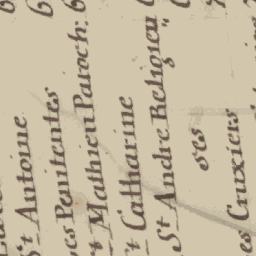 St Antoine
es Penitentes
t Mathieu Paroch: 6
t Catharine
St Andre Religieu
ses
es Cruxiers